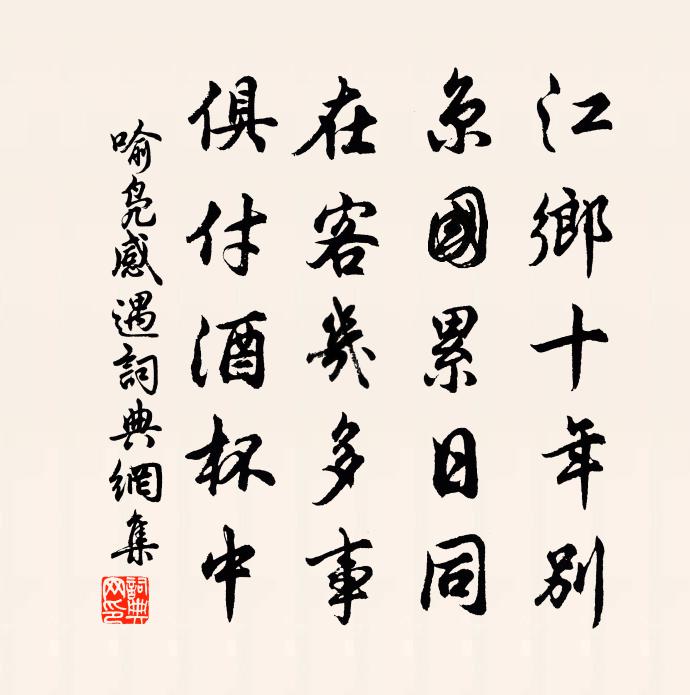 江鄉十年別
京國累日同
在客幾多事
俱付酒杯中
喻鳧感遇詞典網集
詞典網印